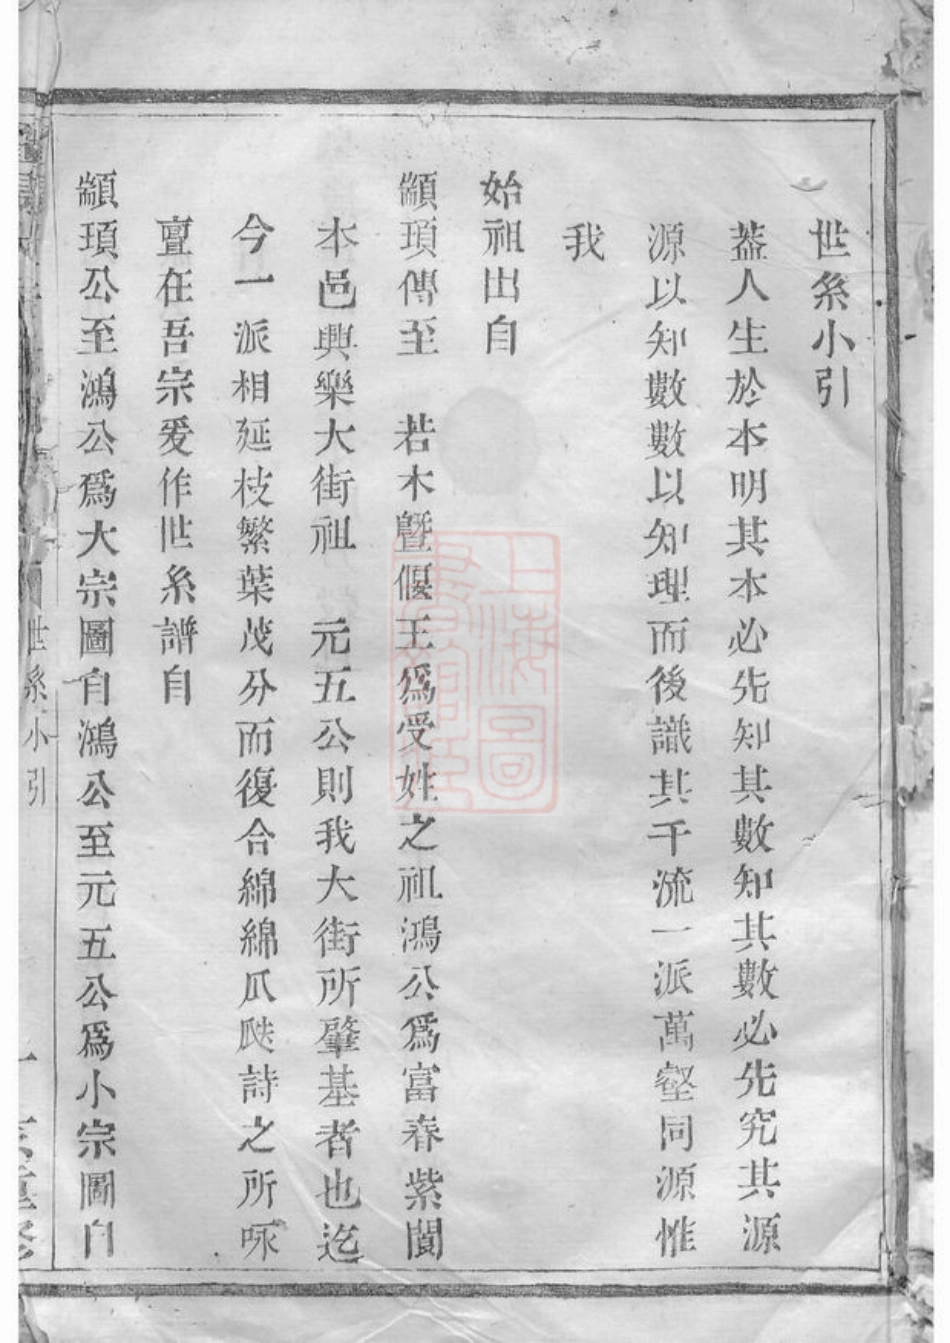 世系小引
葢人生於本明其本必先知其數知其數必先究其源
源以知數數以知理而後識其千流一派萬壑同源惟
我
始祖出自
顓頊傳至　若木曁偃王爲受姓之祖鴻公爲富春紫閬
本邑興樂大街祖　元五公則我大街所肇基者也迄
今一派相延枝繁葉茂分而復合綿綿瓜瓞詩之所咏
亶在吾宗爰作世系譜自
顓頊公至鴻公爲大宗圖自鴻公至元五公爲小宗圖自
世系小引
上海圖